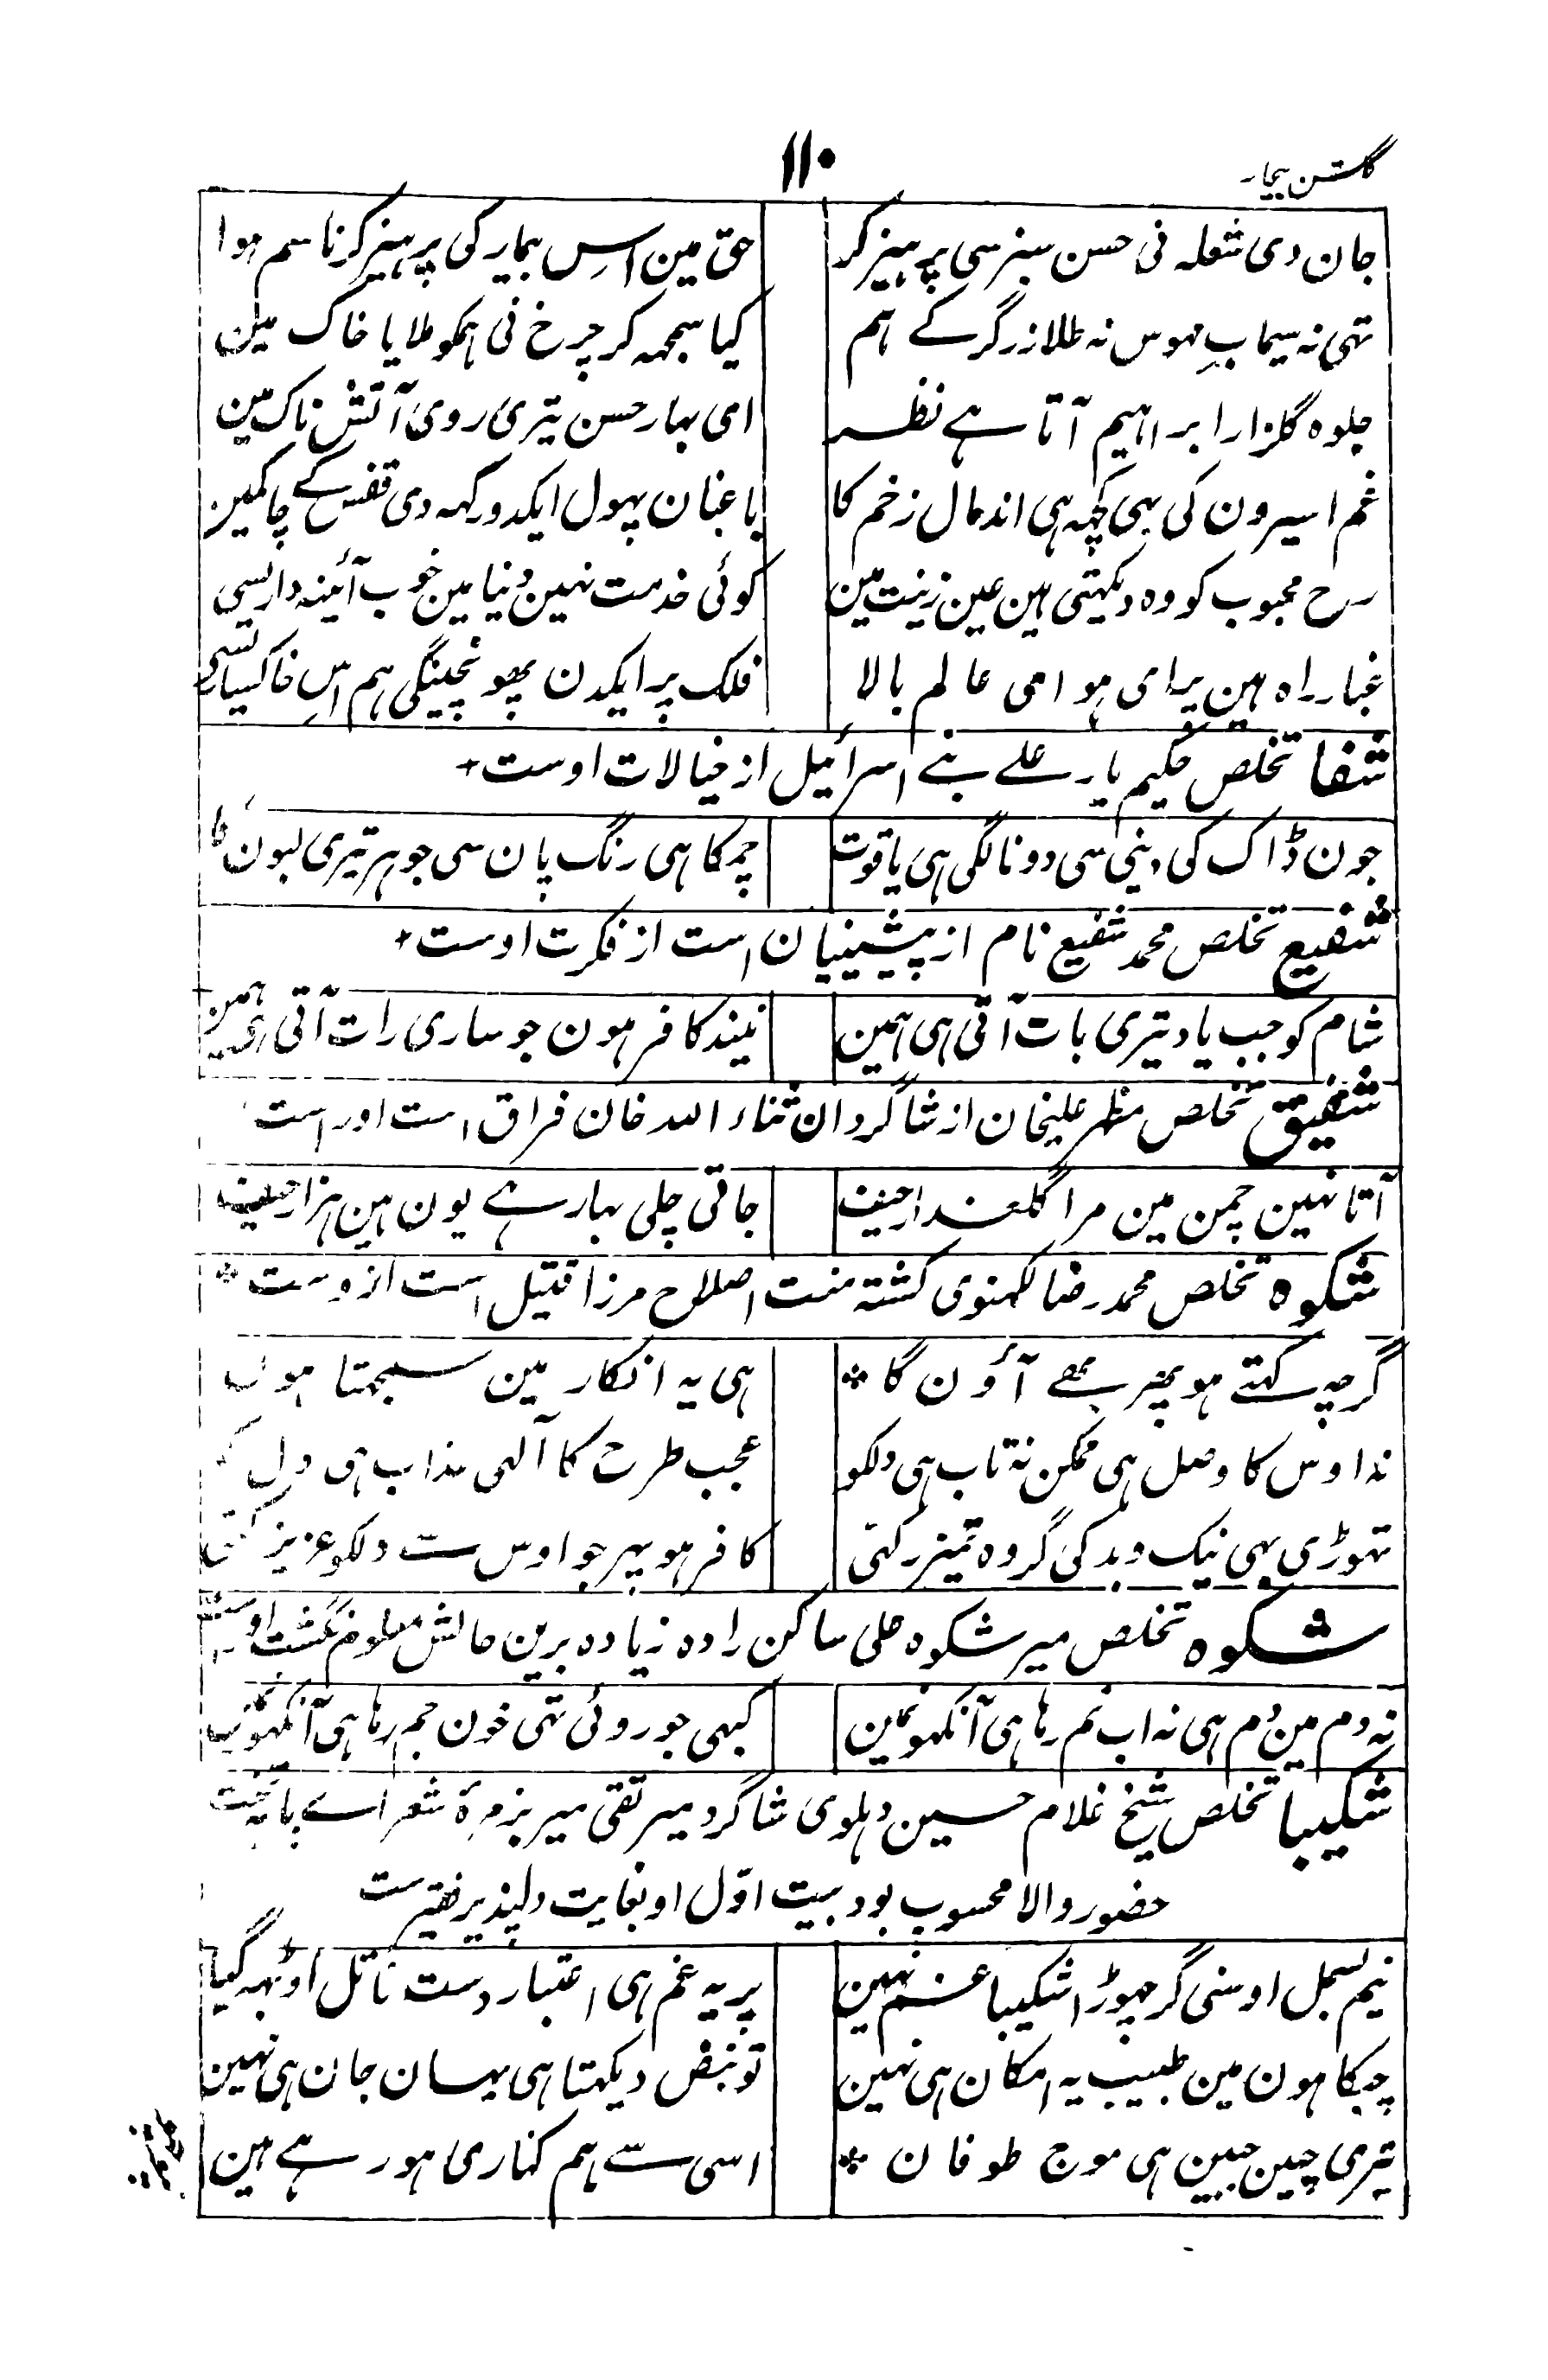 گلشن بیخار
۱۱۰
جان دی شعلہ نی حسن سبز سی پرہیز کر
حق مین اس بیمار کی پرہیز کرنا سم ہوا
تہی نہ سیماب مہوس نہ طلا زرگر کے ہم
کیا سمجہہ کر چرخ نی ہمکو ملایا خاک مین
جلوہ گلزار ابراہیم آتا ہے نظر
ای بہار حسن تیری روی آتش ناک مین
غم اسیرون کی بہی کچہہ ہی اندمال زخم کا
باغبان پہول ایکدو رکہہ دی قفس کے چاکمین
رخ محبوب کو وہ دیکہتی ہین عین زینت مین
کوئی خدمت نہین دنیا مین خوب آئینہ داریسی
غبار راہ ہین برای ہوای عالم بالا
فلک پر ایکدن پہونچینگی ہم اس خاکساریسی
شفا تخلص حکیم یار علے بنے اسرائیل از خیالات اوست
جون ڈاک کی دینی سی دونا لگی ہی یاقوت
چمکا ہی رنگ پان سی جوہر تیری لبون کا
شفیع تخلص محمد شفیع نام از پیشینیان است از فکرت اوست
شام کو جب یاد تیری بات آتی ہی ہمین
نیند کافر ہون جو ساری رات آتی ہی ہمین
شفیق تخلص مظہر علیخان از شاگردان ثناء اللہ خان فراق است اوراست
آتا نہین چمن مین مرا گلعذار حیف
جاتی چلی بہار ہے یون ہین ہزار حیف
شکوہ تخلص محمد رضا لکہنوی کشتہ منت اصلاح مرزا قتیل است ازوست *
گرچہ کہتے ہو پھر بھے آؤن گا *
ہی یہ انکار مین سمجہتا ہون
نہ اوس کا وصل ہی ممکن نہ تاب ہی دلکو
عجب طرح کا آلہی عذاب ہی دل کو
تہوڑی بہی نیک و بد کی گر وہ تمیز رکہتی
کافر ہو پہر جو اوس ست دلکو عزیز رکہتی
شکوہ تخلص میر شکوہ علی ساکن رادہ زیادہ برین حالش معلوم نگشت اوراست
نہ دم مین دم ہی نہ اب نم رہا ہی آنکہونمین
کبہی جو روئی تہی خون جم رہا ہی آنکہونمین
شکیبا تخلص شیخ غلام حسین دہلوی شاگرد میر تقی میر بزمرۂ شعراے پایہ تخت
حضور والا محسوب بود بیت اوّل او بغایت دلپذیر فقیرست
نیم بسمل اوسنی گر چہوڑا شکیبا غم نہین
پر یہ غم ہی اعتبار دست قاتل اوٹہہ گیا
چبکا ہون مین طبیب یہ امکان ہی نہین
تو نبض دیکہتا ہی یہان جان ہی نہین
تیری چین جبین ہی موج طوفان *
اسی سے ہم کناری ہو رہے ہین